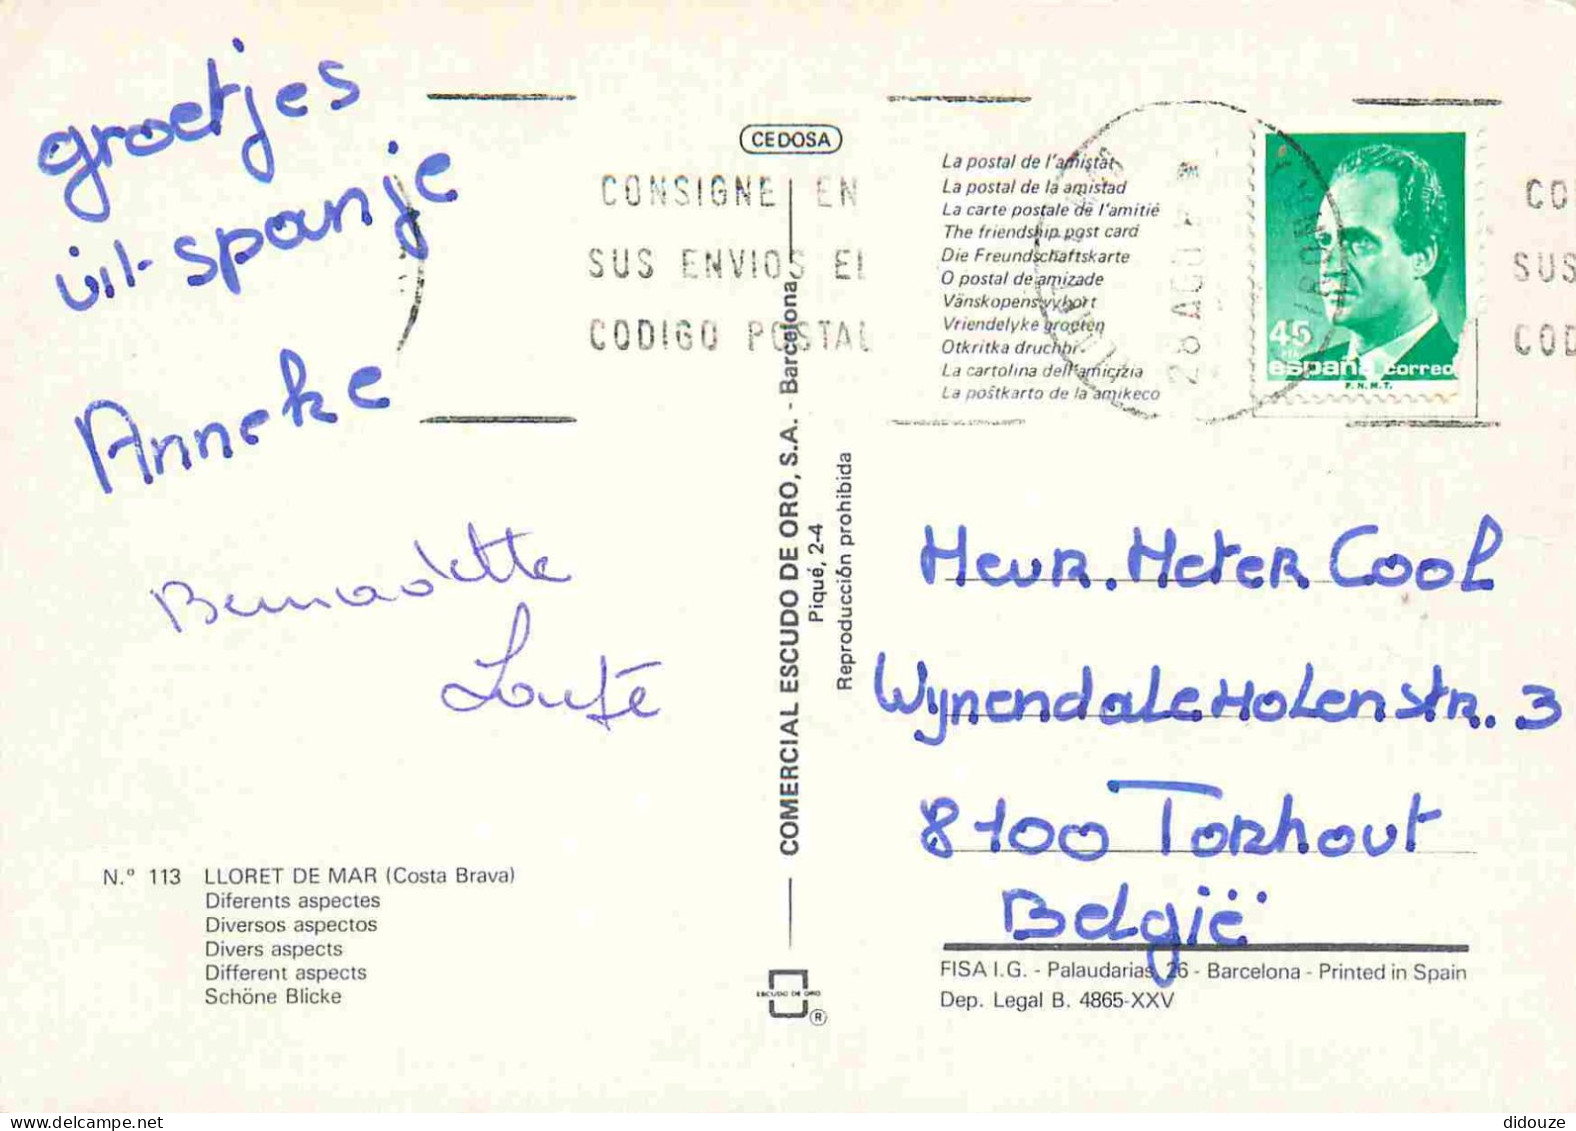 groetjes
uit spanje
Anneke
Bernadette
N.º 113 LLORET DE MAR (Costa Brava)
Diferents aspectes
Diversos aspectos
Divers aspects
Different aspects
Schöne Blicke
CEDOSA
CONSIGNE EN
SUS ENVIOS EL
CODIGO POSTAL
COMERCIAL ESCUDO DE ORO, S.A. - Barcelona
Piqué, 2-4
Reproducción prohibida
ESCUDO DE ORO
®
La postal de l'amistat
La postal de la amistad
La carte postale de l'amitié
The friendship post card
Die Freundschaftskarte
O postal de amizade
Vänskopensvykort
Vriendelyke groeten
Otkritka druchbi
La cartolina dell'amicizia
La poŝtkarto de la amikeco
28 AGO
45
PTA
españa correo
F.N.M.T.
CO
SUS
COD
Meur. Meter Cool
Wynendale Molenstr. 3
8100 Torhout
België
FISA I.G. - Palaudarias, 26 - Barcelona - Printed in Spain
Dep. Legal B. 4865-XXV
didouze